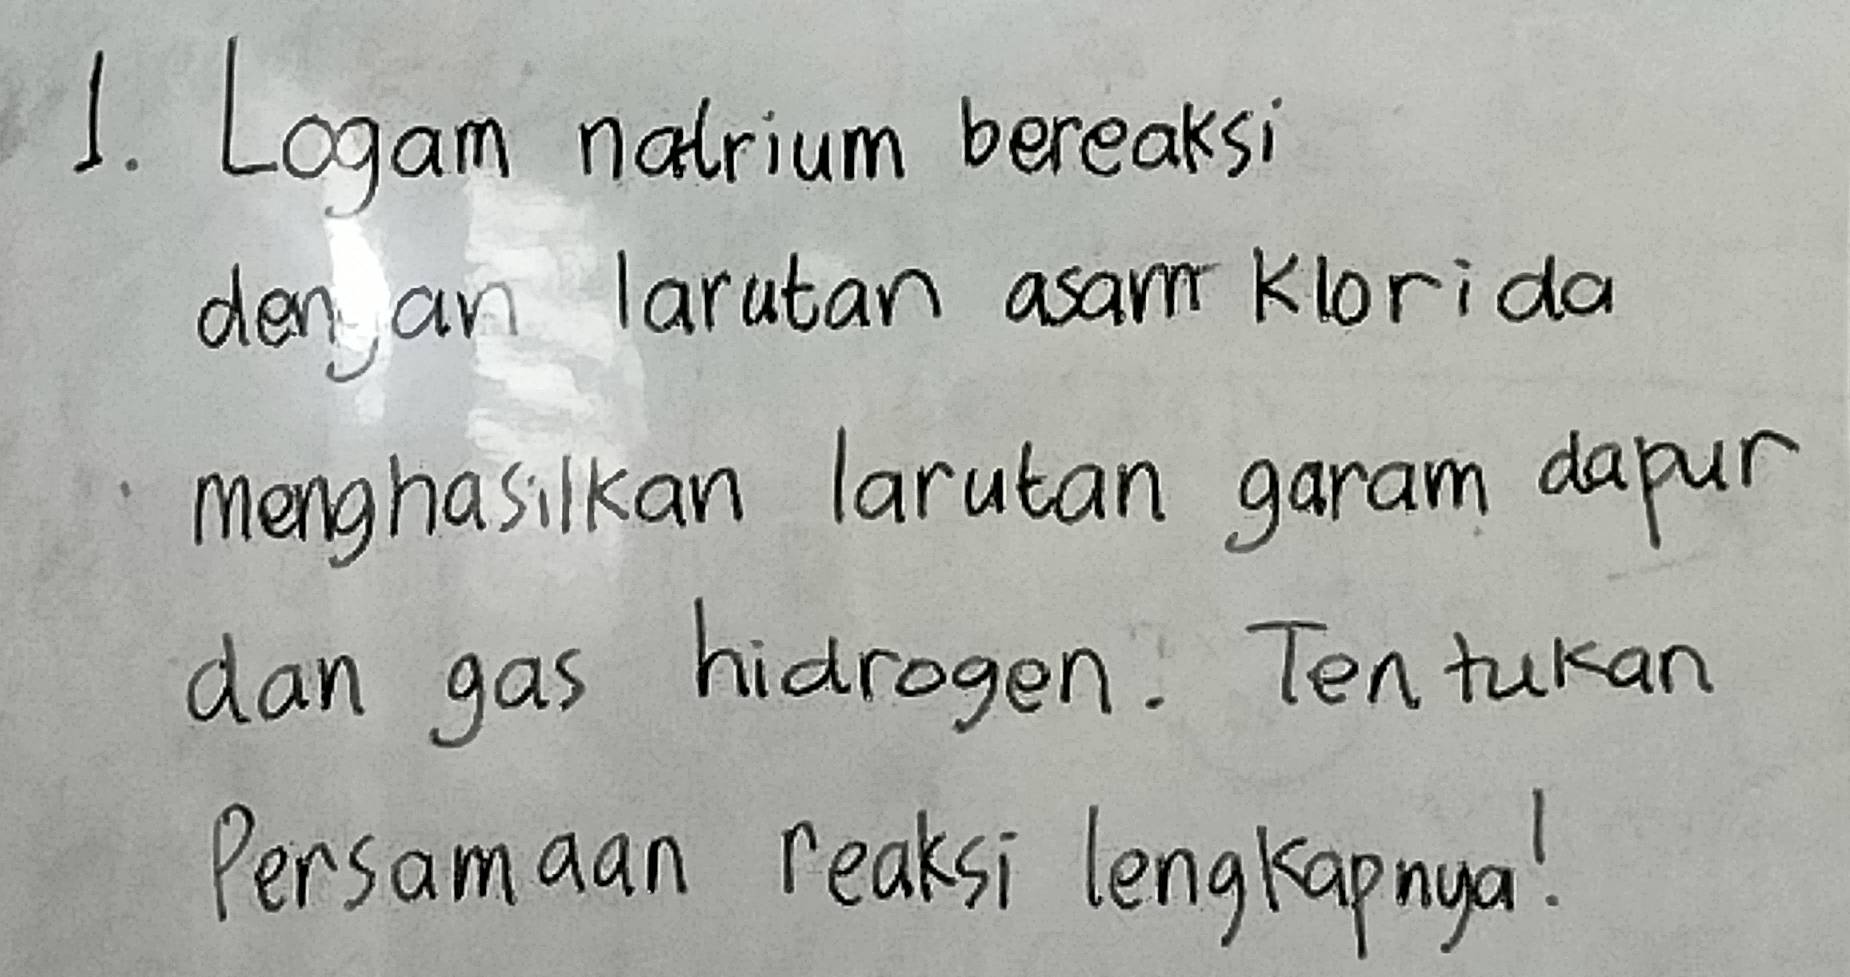 1. Logam natrium bereaksi
dengan larutan asam klorida
menghasilkan larutan garam dapur
dan gas hidrogen. Tentukan
Persamaan reaksi lengkapnya!